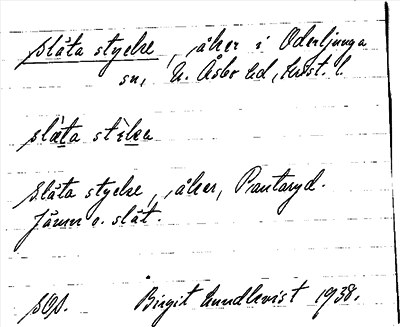 Slåta stycke, åker i Oderljunga
sn, N. Åsbo hd, Krist. l.
slàta stìkə
Slåta stycke, åker, Pantaryd.
Jämn o. slät.
SOS. Birgit Lundkvist 1938.